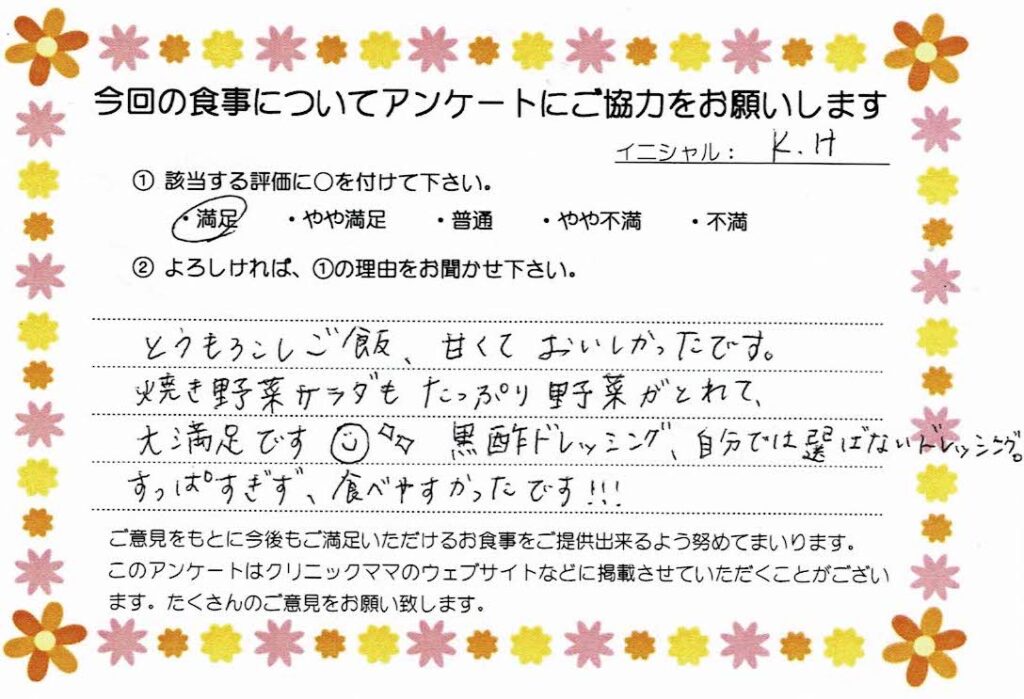 今回の食事についてアンケートにご協力をお願いします
イニシャル： K.H
① 該当する評価に○を付けて下さい。
・満足 ・やや満足 ・普通 ・やや不満 ・不満
② よろしければ、①の理由をお聞かせ下さい。
とうもろこしご飯、甘くておいしかったです。
焼き野菜サラダもたっぷり野菜がとれて、
大満足です 黒酢ドレッシング、自分では選ばないドレッシング。
すっぱすぎず、食べやすかったです!!!
ご意見をもとに今後もご満足いただけるお食事をご提供出来るよう努めてまいります。
このアンケートはクリニックママのウェブサイトなどに掲載させていただくことがござい
ます。たくさんのご意見をお願い致します。